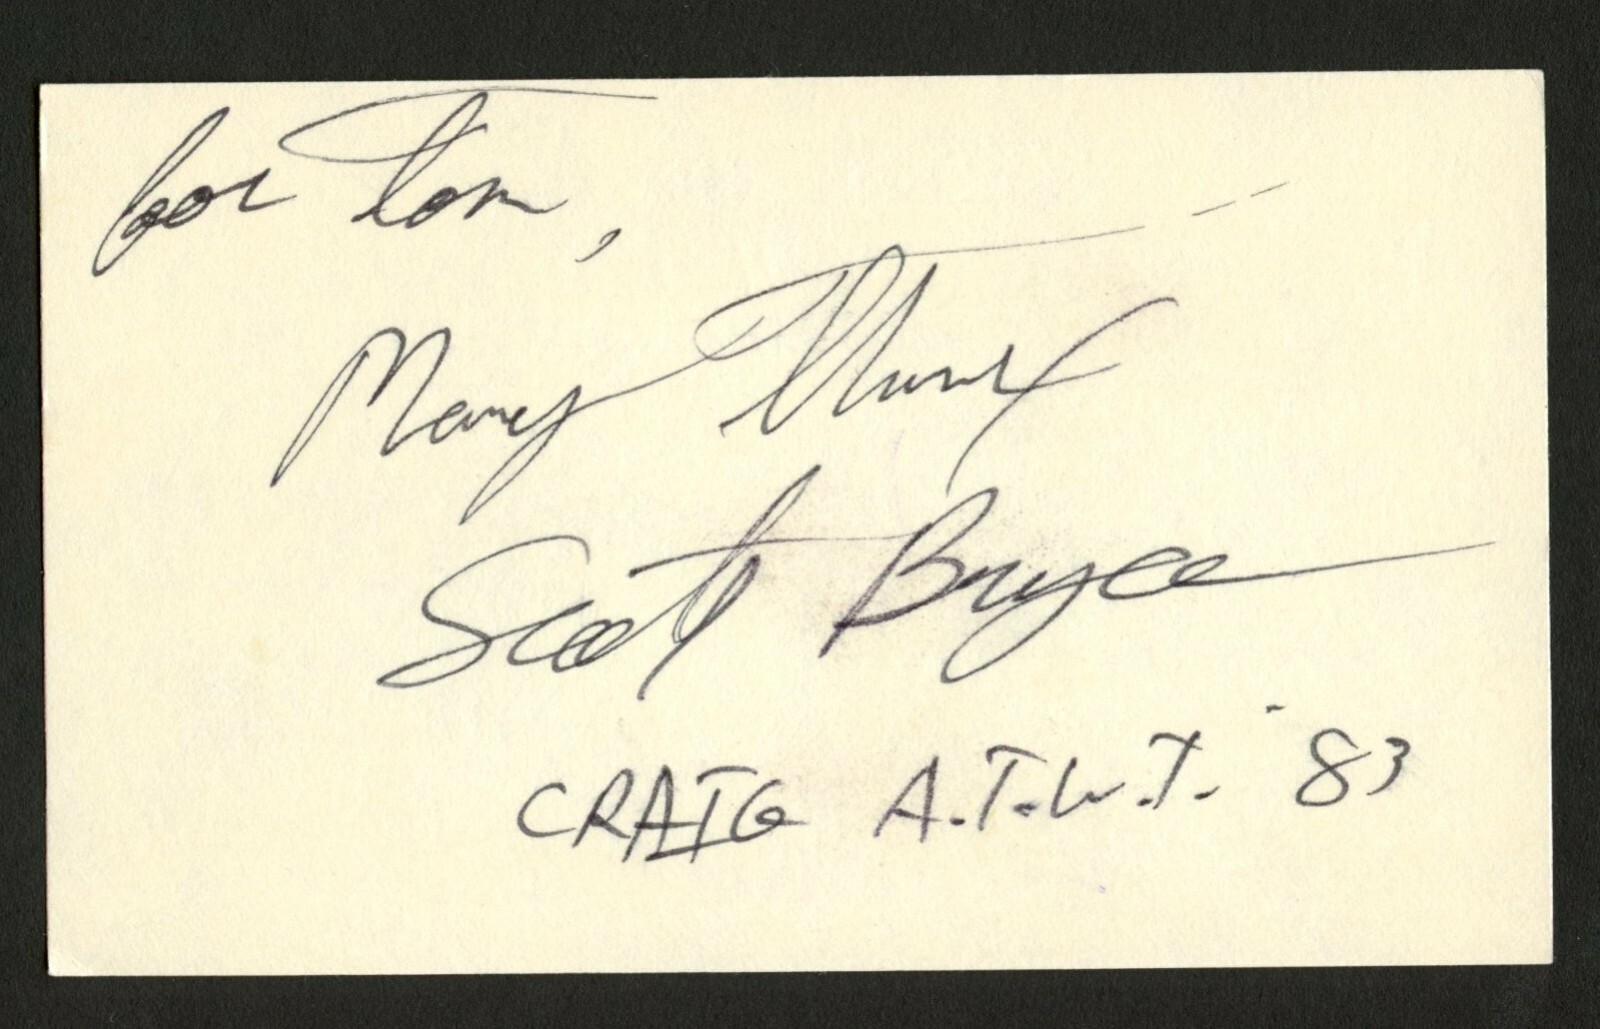 for Tom,
Many Thanx
Scott Bryce
CRAIG A.T.W.T. '83